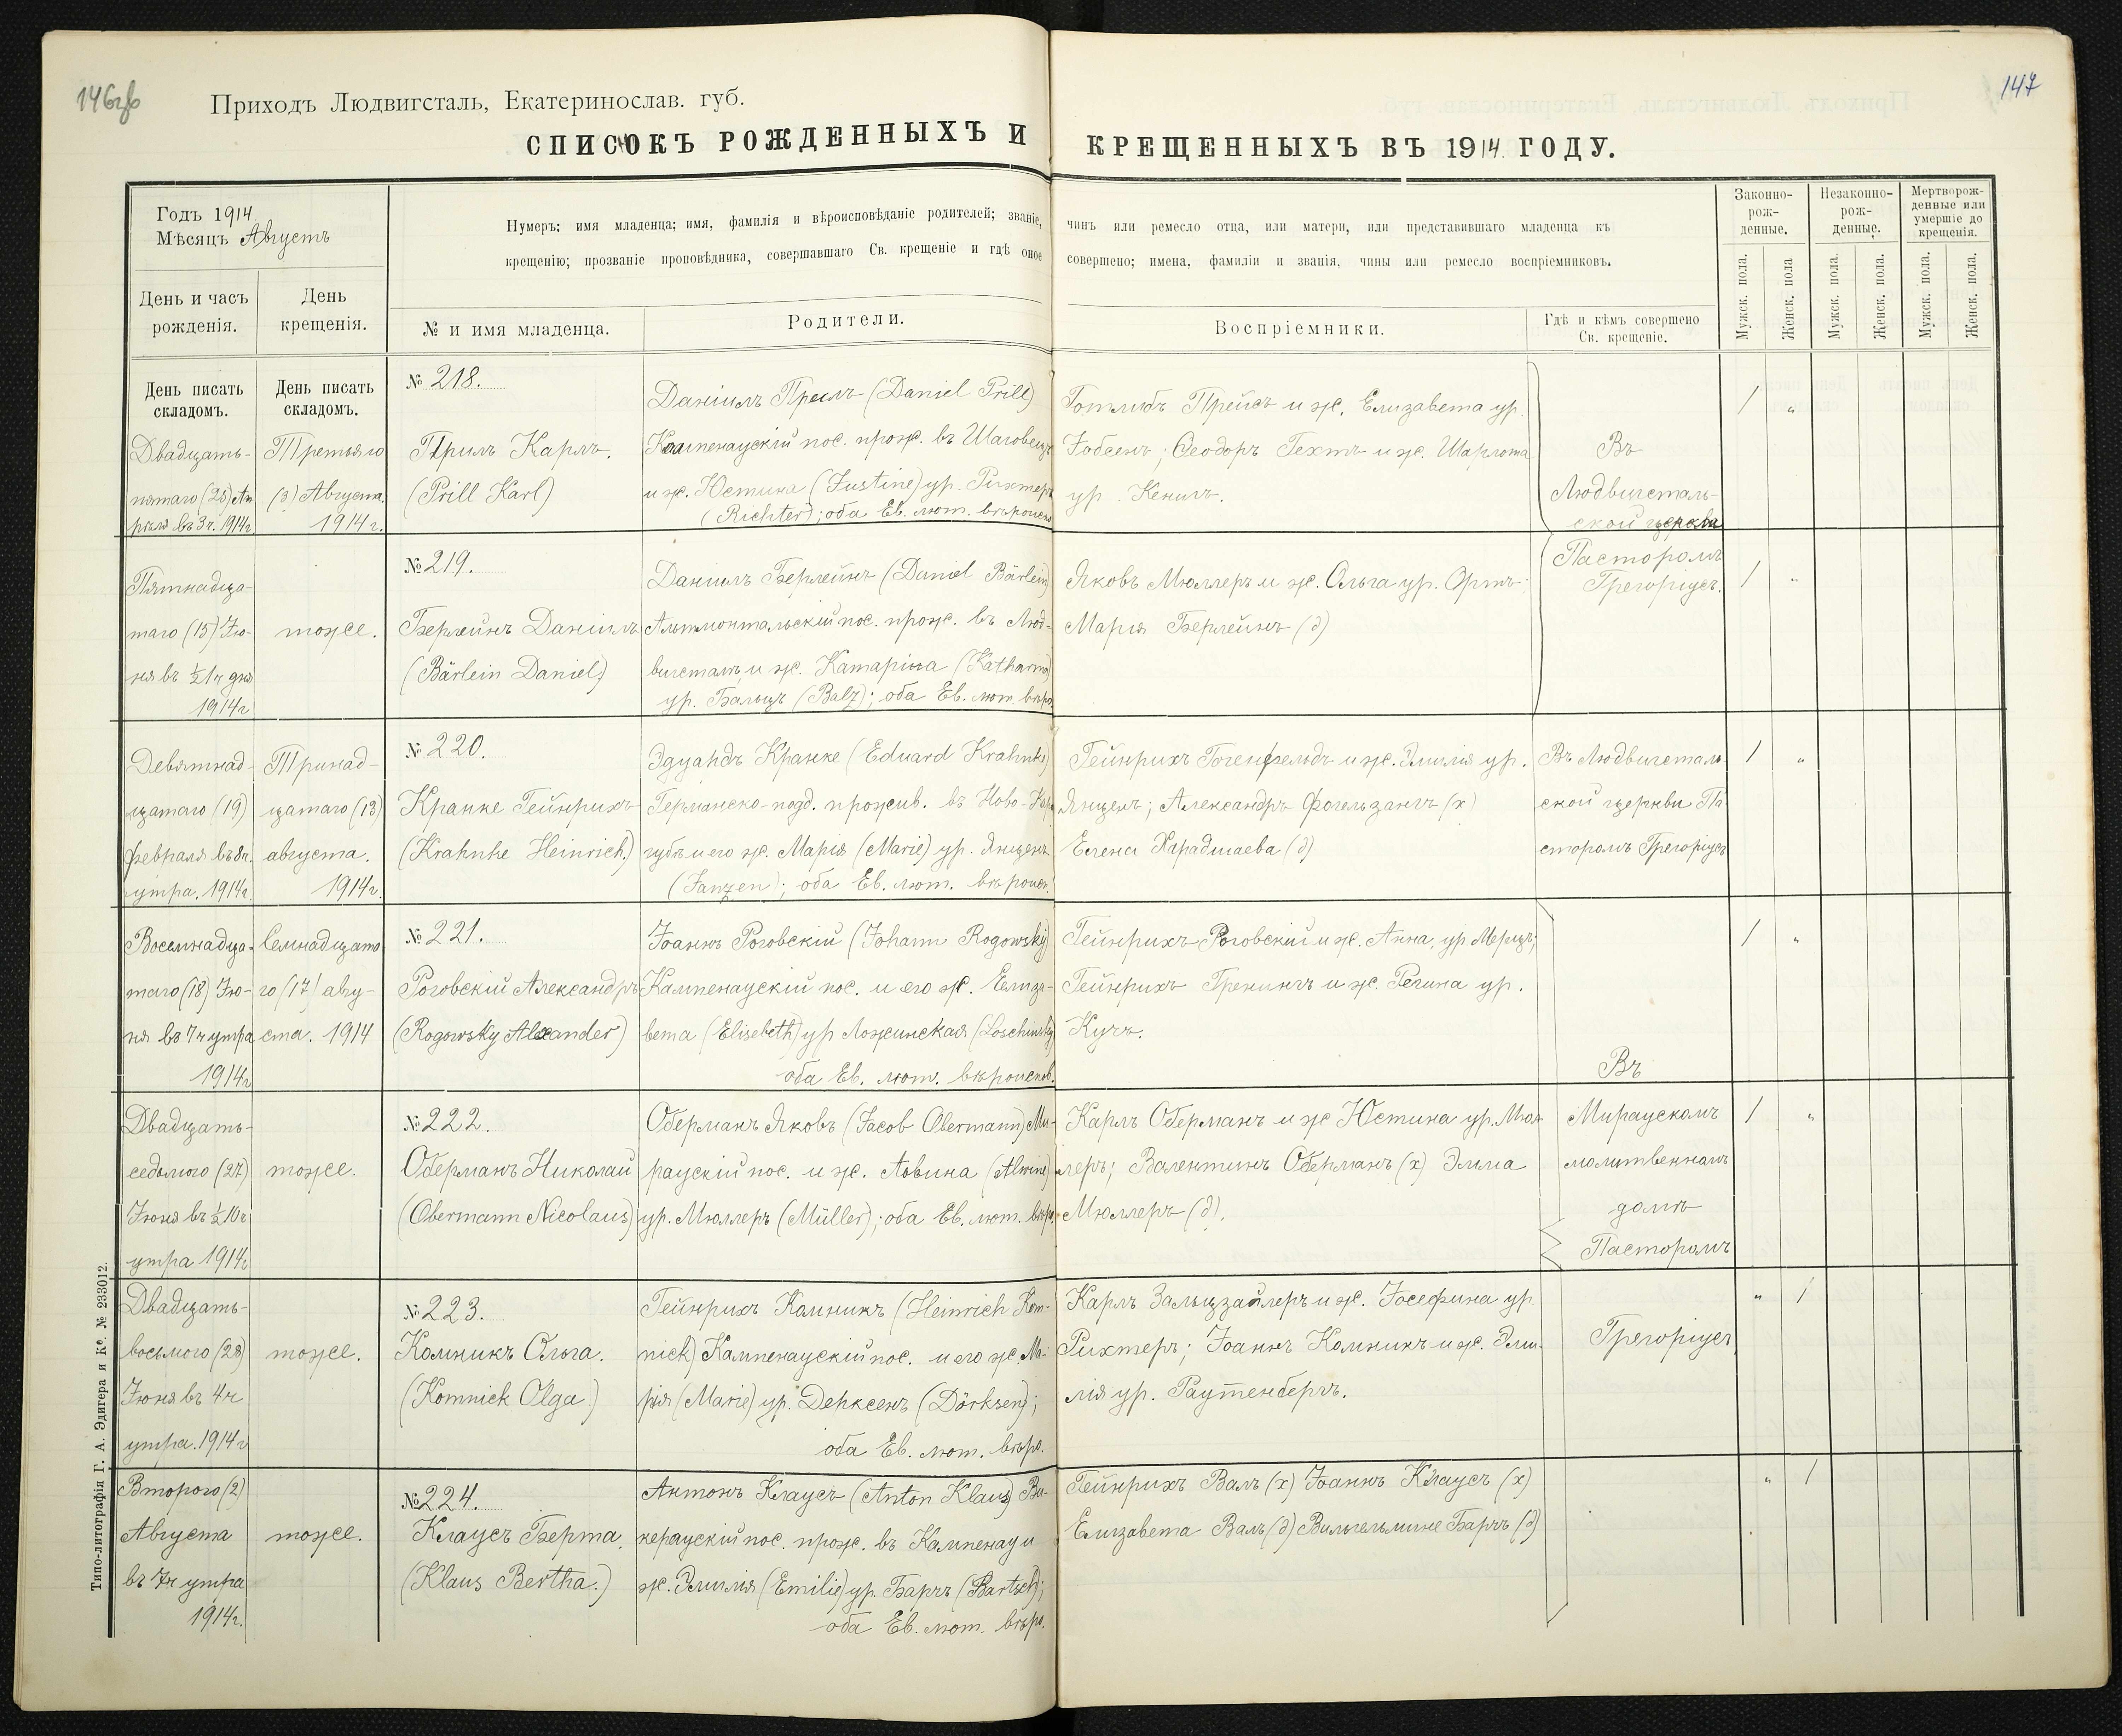 146об
147
Приходъ Людвигсталь, Екатеринослав. губ.
СПИСОКЪ РОЖДЕННЫХЪ И КРЕЩЕННЫХЪ ВЪ 1914 ГОДУ.
Годъ 1914
Мѣсяцъ Августъ
Нумеръ; имя младенца; имя, фамилія и вѣроисповѣданіе родителей; званіе, чинъ или ремесло отца, или матери, или представившаго младенца къ
крещенію; прозваніе проповѣдника, совершавшаго Св. крещеніе и гдѣ оное совершено; имена, фамиліи и званія, чины или ремесло воспріемниковъ.
Законно-
рож-
денные.
Незаконно-
рож-
денные.
Мертворож-
денные или
умершіе до
крещенія.
День и часъ
рожденія.
День
крещенія.
№ и имя младенца.
Родители.
Воспріемники.
Гдѣ и кѣмъ совершено
Св. крещеніе.
Мужск. пола.
Женск. пола
Мужск. пола.
Женск. пола.
Мужск. пола.
Женск. пола.
День писать
складомъ.
День писать
складомъ.
Двадцать-
пятаго (25) Ап
рѣля въ 3ч. 1914г.
Третьяго
(3) Августа.
1914г.
№ 218.
Прилъ Карлъ.
(Prill Karl)
Даніилъ Прилъ (Daniel Prill)
Кампенаускій пос. прож. въ
и ж. Юстина (Justine) ур. Рихтеръ
(Richter); оба Ев. лют. вѣроисп
Готлибъ Прейсъ и ж. Елизавета ур.
Зобсенъ; Ѳеодоръ Гехтъ и ж. Шарлота
ур. Кенигъ.
Въ
Людвигсталь-
ской церкви
/ „
Пятнадца-
таго (15) Iю-
ня въ ½1ч дня
1914г
тоже.
№ 219.
Берлейнъ Даніилъ
(Bärlein Daniel)
Даніилъ Берлейнъ (Daniel Bärlein)
Альтмонтальскій пос. прож. въ Люд-
вигсталь и ж. Катаріна (Katharina)
ур. Бальцъ (Balz); оба Ев. лют. вѣро.
Яковъ Мюллеръ и ж. Ольга ур. Ортъ
Марія Берлейнъ (д)
Пасторомъ
Грегоріусъ.
/ „
Девятнад-
цатаго (19)
февраля въ 8ч.
утра. 1914г.
Тринад-
цатаго (13)
августа.
1914г.
№ 220.
Кранке Гейнрихъ
(Krahnke Heinrich.)
Эдуардъ Кранке (Eduard Krahnke)
Германско-подд. прожив. въ Ново-
и его ж. Марія (Marie) ур. Янценъ
(Janzen); оба Ев. лют. вѣроисп.
Гейнрихъ Гогенфельдъ и ж. Эмилія ур.
Янценъ; Александръ Фогельзангъ (х)
Елена (д)
Въ Людвигсталь-
ской церкви Па
сторомъ Грегоріусъ
/ „
Восемнадца-
таго (18) Iю-
ня въ 7ч утра
1914г
Семнадцато
го (17) авгу-
ста. 1914
№ 221.
Роговскій Александръ
(Rogowsky Alexander)
Iоаннъ Роговскій (Johann Rogowsky)
Кампенаускій пос. и его ж. Елиза-
вета (Elisebeth) ур Ложинская (Loschinsky)
оба Ев. лют. вѣроиспов.
Гейнрихъ Роговскій и ж. Анна, ур Мерцъ;
Гейнрихъ Гренингъ и ж. Регина ур.
Кучъ.
Въ
/ „
Двадцать-
седьмого (27)
Iюня въ ½10ч
утра 1914г
тоже.
№ 222.
Оберманъ Николай
(Obermann Nicolaus)
Оберманъ Яковъ (Jacob Obermann) Ми-
рауcкій пос. и ж. Алвина (Alwine)
ур. Мюллеръ (Müller); оба Ев. лют. вѣро.
Карлъ Оберманъ и ж Юстина ур. Мюл-
леръ; Валентинъ Оберманъ (х) Эмма
Мюллеръ (д).
Мирaускомъ
молитвенномъ
домѣ
Пасторомъ
/ „
Двадцать-
восьмого (28)
Iюня въ 4ч
утра. 1914г
тоже.
№ 223.
Комникъ Ольга.
(Komnick Olga)
Гейнрихъ Комникъ (Heinrich Kom-
nick) Кампенаускій пос. и его ж. Ма-
рія (Marie) ур. Дерксенъ (Dörksen);
оба Ев. лют. вѣро.
Карлъ Зальцзайлеръ и ж. Iосефина ур
Рихтеръ; Iоаннъ Комникъ и ж. Эми-
лія ур. Раутенбергъ.
Грегоріусъ
„ /
Второго (2)
Августа
въ 7ч утра
1914г.
тоже.
№ 224.
Клаусъ Берта.
(Klaus Bertha.)
Антонъ Клаусъ (Anton Klaus) Ви-
керауcкій пос. прож. въ Кампенау и
ж. Эмилія (Emilie) ур. Барчъ (Bartsch);
оба Ев. лют. вѣро.
Гейнрихъ Валъ (х) Iоаннъ Клаусъ (х)
Елизавета Валъ (д) Вильгельмине Барчъ (д)
„ /
Типо-литографія Г. А. Эдигера и Ко. № 233012.